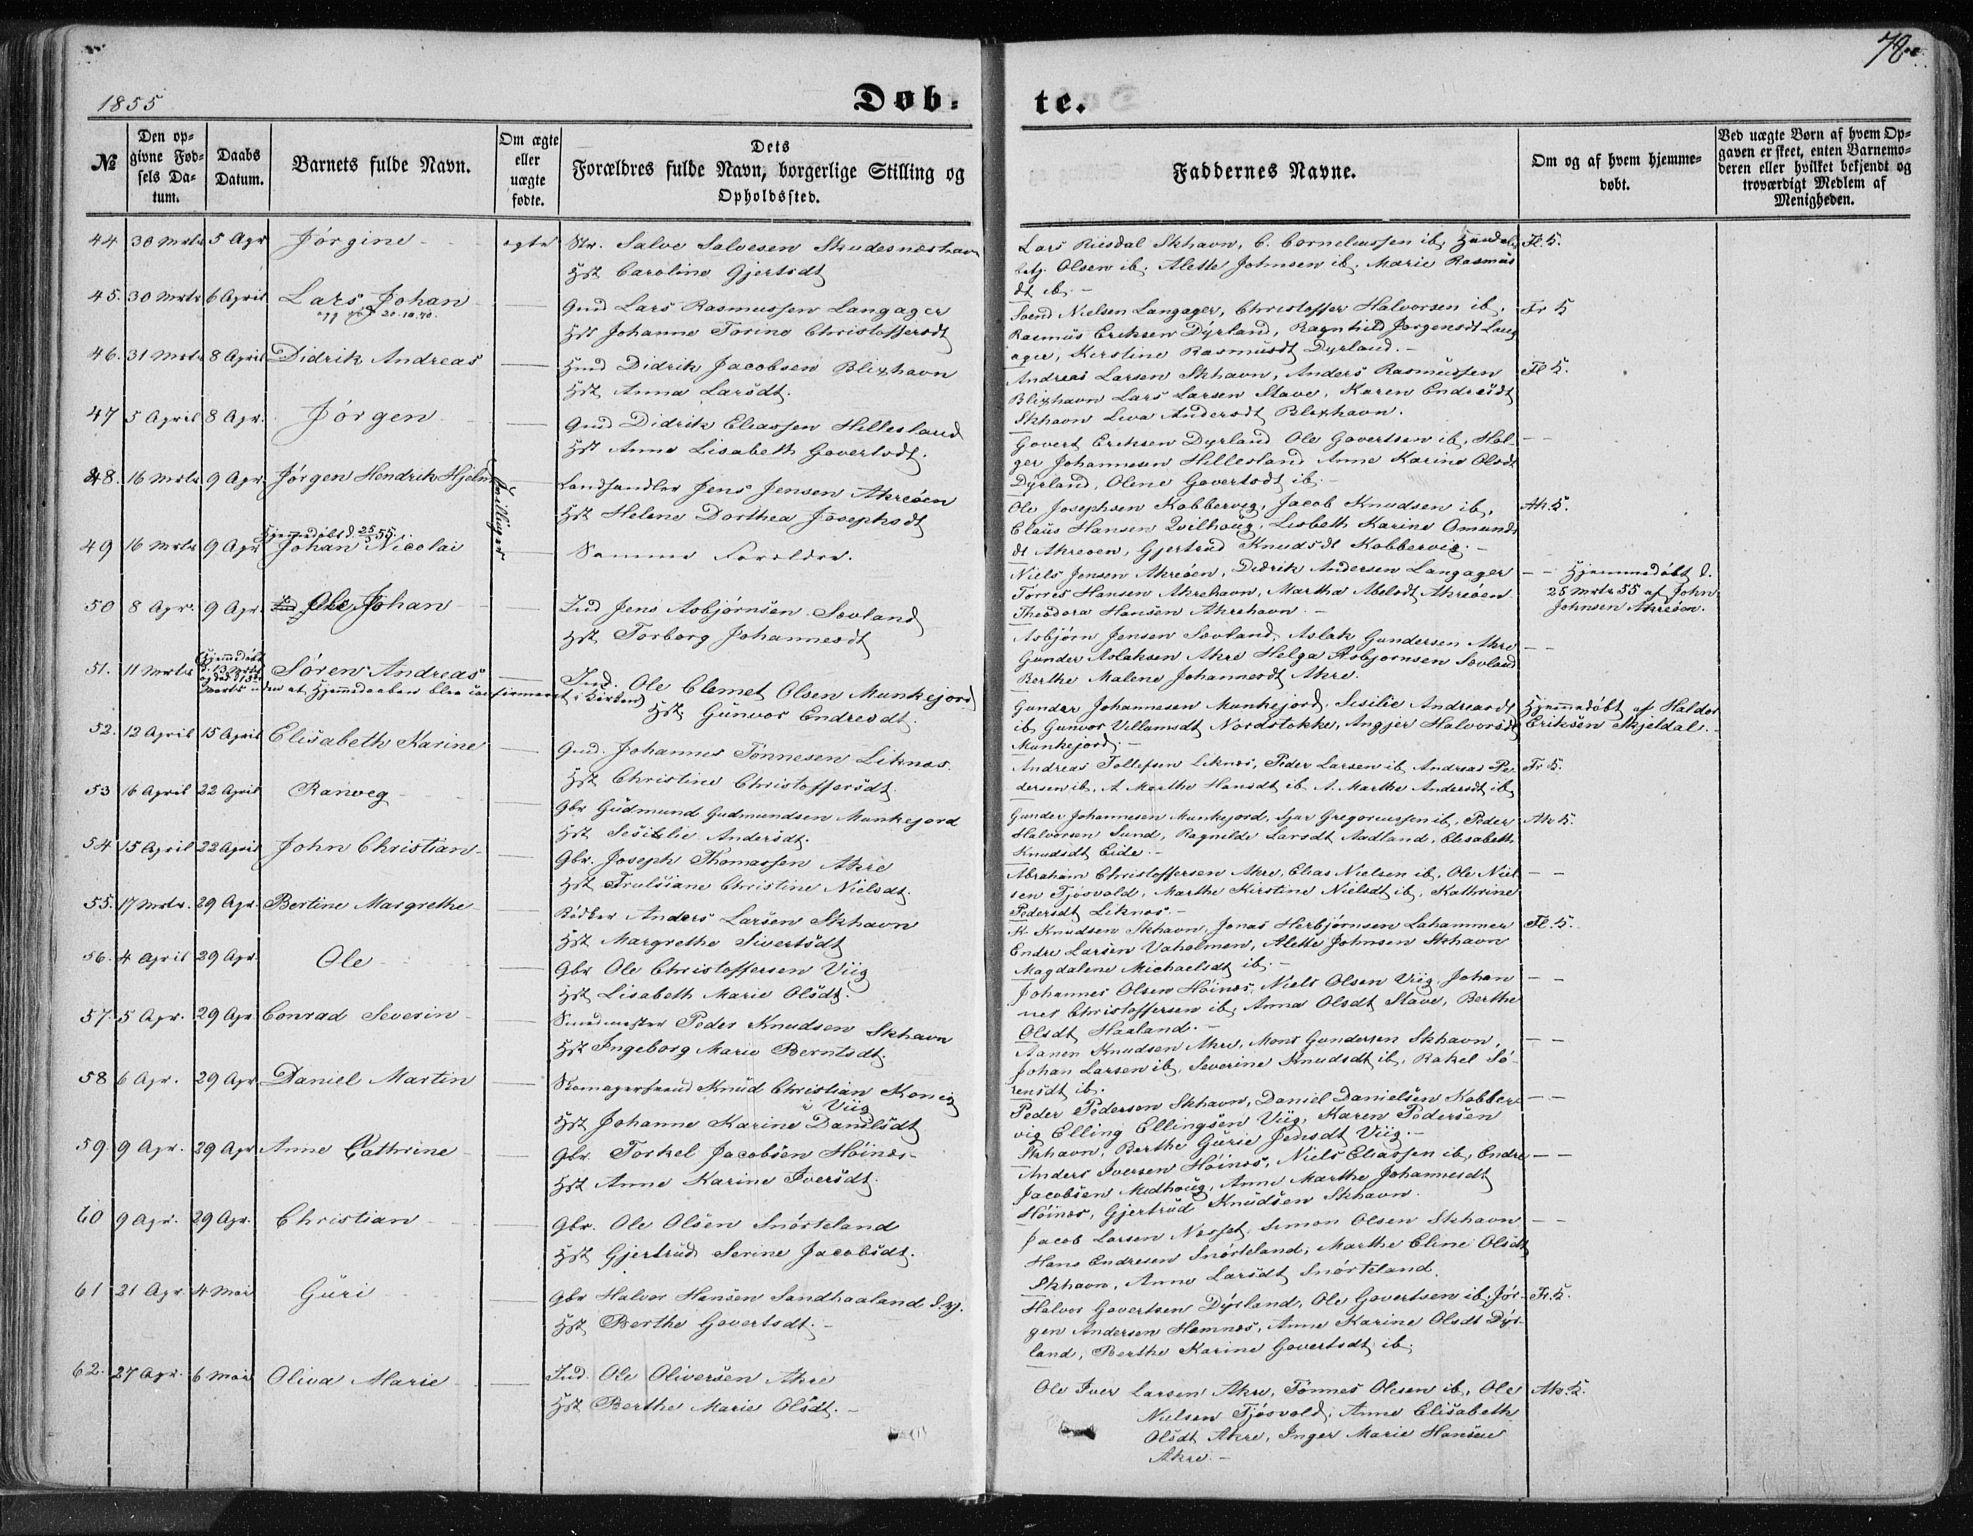 78
1855
Døb-
te.
№
Den op-
givne Fød-
sels Da-
tum.
Daabs
Datum.
Barnets fulde Navn.
Om ægte
eller
uægte
fødte.
Dets
Forældres fulde Navn, borgerlige Stilling og
Opholdssted.
Faddernes Navne.
Om og af hvem hjemme-
døbt.
Ved uægte Børn af hvem Op-
gaven er skeet, enten Barnemo-
deren eller hvilket bekjendt og
troværdigt Medlem af
Menigheden.
44 30 Mrts 5 Apr Jørgine egte Salve Salvesen Skudesnæshavn
Hst Caroline Gjertsdt
Lars Riisdal Skhavn, C. Corneleussen ib, Fl. K.
Olsen ib, Alette Johnsen ib, Marie Rasmus
dt ib.
45. 30 Mrts 6 April Lars Johan Gmd Lars Rasmussen Langager
20-10-70.
Hst Johanne Torine Christoffersdt
Svend Nielsen Langager, Christoffer Halvorsen ib, Fr K
Rasmus Eriksen Dyrland, Ragnhild Jørgensdt Lang
ager, Kirstine Rasmusdt Dyrland.
46. 31 Mrts 8 April Didrik Andreas Hmd Didrik Jacobsen Blixhavn
Hst Anna Larsdt.
Andreas Larsen Skhavn, Anders Rasmussen Fl K.
Blixhavn Lars Larsen Stave, Karen Endresdt
Skhavn Liva Andersdt Blixhavn.
47 5 April 8 Apr. Jørgen Gmd Didrik Eliassen Hillesland
Hst Anna Lisabeth Govertsdt.
Govert Eriksen Dyrland Ole Govertsen ib, Hol-
ger Johannesen Hillesland Anne Karine Olsdt
Dyrland, Olene Govertsdt ib.
48. 16 Mrts 9 Apr. Jørgen Hendrik Hjelm Tvillinger Landhandler Jens Jensen Akreøen
Hst Helene Dorthea Josephsdt
Ole Josephsen Kobbervig, Jacob Knudsen ib, Ak. K.
Claus Hansen Qvilhoug, Lisbeth Karine Omunds
dt Akreøen, Gjertrud Knudsdt Kobbervig.
Hjemmedøbt d. 25/3 55.
49 16 Mrts 9 Apr Johan Nicolai Samme Foreldre.
Niels Jensen Akreøen, Didrik Andersen Langager Hjemmedøbt d.
Torres Hansen Akrehavn, Martha Abelsdt Akreøen 25 Mrts 55 af John
Theodora Hansen Akrehavn. Johnsen Akreøen.
50 8 Apr. 9 Apr. Ole Johan Ind Jens Asbjørnsen Sævland
Hst Torborg Johannesdt
Asbjørn Jensen Sævland, Aslak Gundersen Akre
Gunder Aslaksen Akre Helga Asbjørnsen Sævland
Berthe Malene Johannesdt Akre.
51. 11 Mrts Hjemmedøbt
d. 13 Marts
Søren Andreas Ind. Ole Clemet Olsen Munkejord
Marts uden at Hjemmedaaben blev confirmeret i Kirken
Hst. Gunvor Endresdt.
Gunder Johannesen Munkejord, Sesilie Andreasdt Hjemmedøbt af Haldor
ib Gunvor Villamsdt Nordstokke, Angjer Halvorsdt Eriksen Skjeldal.
Munkejord.
52. 12 April 15 April Elisabeth Karine Gmd. Johannes Tønnesen Liknæs.
Hst Christine Christoffersdt
Andreas Tollefsen Liknæs, Peder Larsen ib, Andreas Pe- Fr K.
dersen ib, A Marthe Hansdt ib A. Marthe Andersdt ib
53 16 April 22 April Ranveg Gbr Gudmund Gudmundsen Munkejord
Hst Sesilie Andersdt.
Gunder Johannesen Munkejord, Ajar Gregoreussen ib, Peder Ak K.
Halvorsen Sund, Ragnilde Larsdt Aadland, Elisabeth
Knudsdt Eide.
54 15 April 22 April John Christian Gbr. Joseph Thomassen Akre
Hst Trulsiane Christine Nielsdt.
Abraham Christoffersen Akre, Elias Nielsen ib, Ole Niel
sen Tjøsvold, Marthe Kirstine Nielsdt ib, Kathrine
Pedersdt Liknæs.
55. 17 Mrts. 29 Apr. Bertine Margrethe Bødker Anders Larsen Skhavn
Hst Margrethe Sivertsdt
K Knudsen Skhavn, Jonas Herbjørnsen Lahammer Fl. K.
Endre Larsen Vaholmen, Alette Johnsen Skhavn
Magdalene Michaelsdt ib.
56. 4 April 29 Apr. Ole Gbr Ole Christoffersen Viig
Hst Lisabeth Marie Olsdt.
Johannes Olsen Høinæs, Niels Olsen Viig Johan
nes Christoffersen ib, Anna Olsdt Stave, Berthe
Olsdt Haaland.
57. 5 Apr. 29 Apr Conrad Severin Smedmester Peder Knudsen Skhavn
Hst Ingeborg Marie Berntsdt.
Aanen Knudsen Akre, Mons Gundersen Skhavn,
Johan Larsen ib, Severine Knudsdt ib, Rakel Sø-
rensdt ib.
58 6 Apr. 29 Apr Daniel Martin Skomagersvend Knud Christian Konig
i Viig
Hst Johanne Karine Danilsdt
Peder Pedersen Skhavn, Daniel Danielsen Kobber
vig Elling Ellingsen Viig, Karen Pedersen
Skhavn, Berthe Gurie Jensdt Viig.
59. 9 Apr. 29 Apr Anne Cathrine Gbr. Torkel Jacobsen Høinæs
Hst Anne Karine Iversdt.
Anders Iversen Høinæs, Niels Eliassen ib, Endre
Jacobsen Medhoug, Anne Marthe Johannesdt
Høinæs, Gjertrud Knudsen Skhavn.
60 9 Apr. 29 Apr. Christian Gbr. Ole Olsen Snørteland
Hst Gjertrud Serine Jacobsdt.
Jacob Larsen Næsset, Simon Olsen Skhavn
Hans Endresen Snørteland, Marthe Eline Olsdt
Skhavn, Anne Larsdt Snørteland.
61 21 Apr 4 Mai Guri Gbr Halvor Hansen Sandhaaland
Hst Berthe Govertsdt.
Halvor Govertsen Dyrland, Ole Govertsen ib, Jør- Fr. K.
gen Andersen Hemnes, Anne Karine Olsdt Dyr-
land, Berthe Karine Govertsdt ib.
62. 27 Apr. 6 Mai Oliva Marie Ind. Ole Oliversen Akre
Hst Berthe Marie Olsdt.
Ole Iver Larsen Akre, Tønnes Olesen ib, Ole Ak. K.
Nielsen Tjøsvold, Anne Elisabeth
Olsdt Akre, Inger Marie Hansen
Akre.